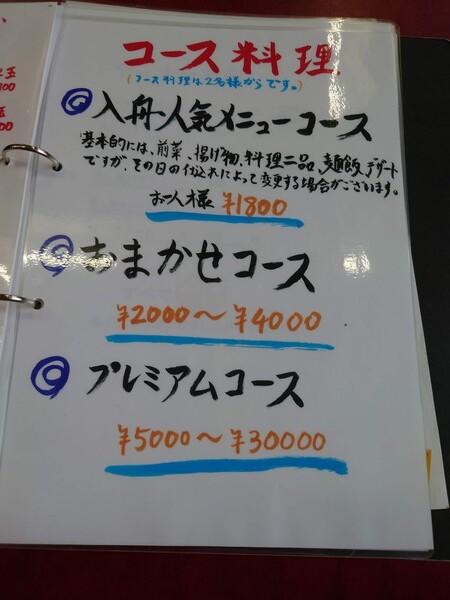 コース料理
(コース料理は2名様からです。)
入舟人気メニューコース
基本的には、前菜、揚げ物、料理二品、麺飯、デザート
ですが、その日の仕入れによって変更する場合がございます。
お一人様 ¥1800
おまかせコース
¥2000〜¥4000
プレミアムコース
¥5000〜¥30000